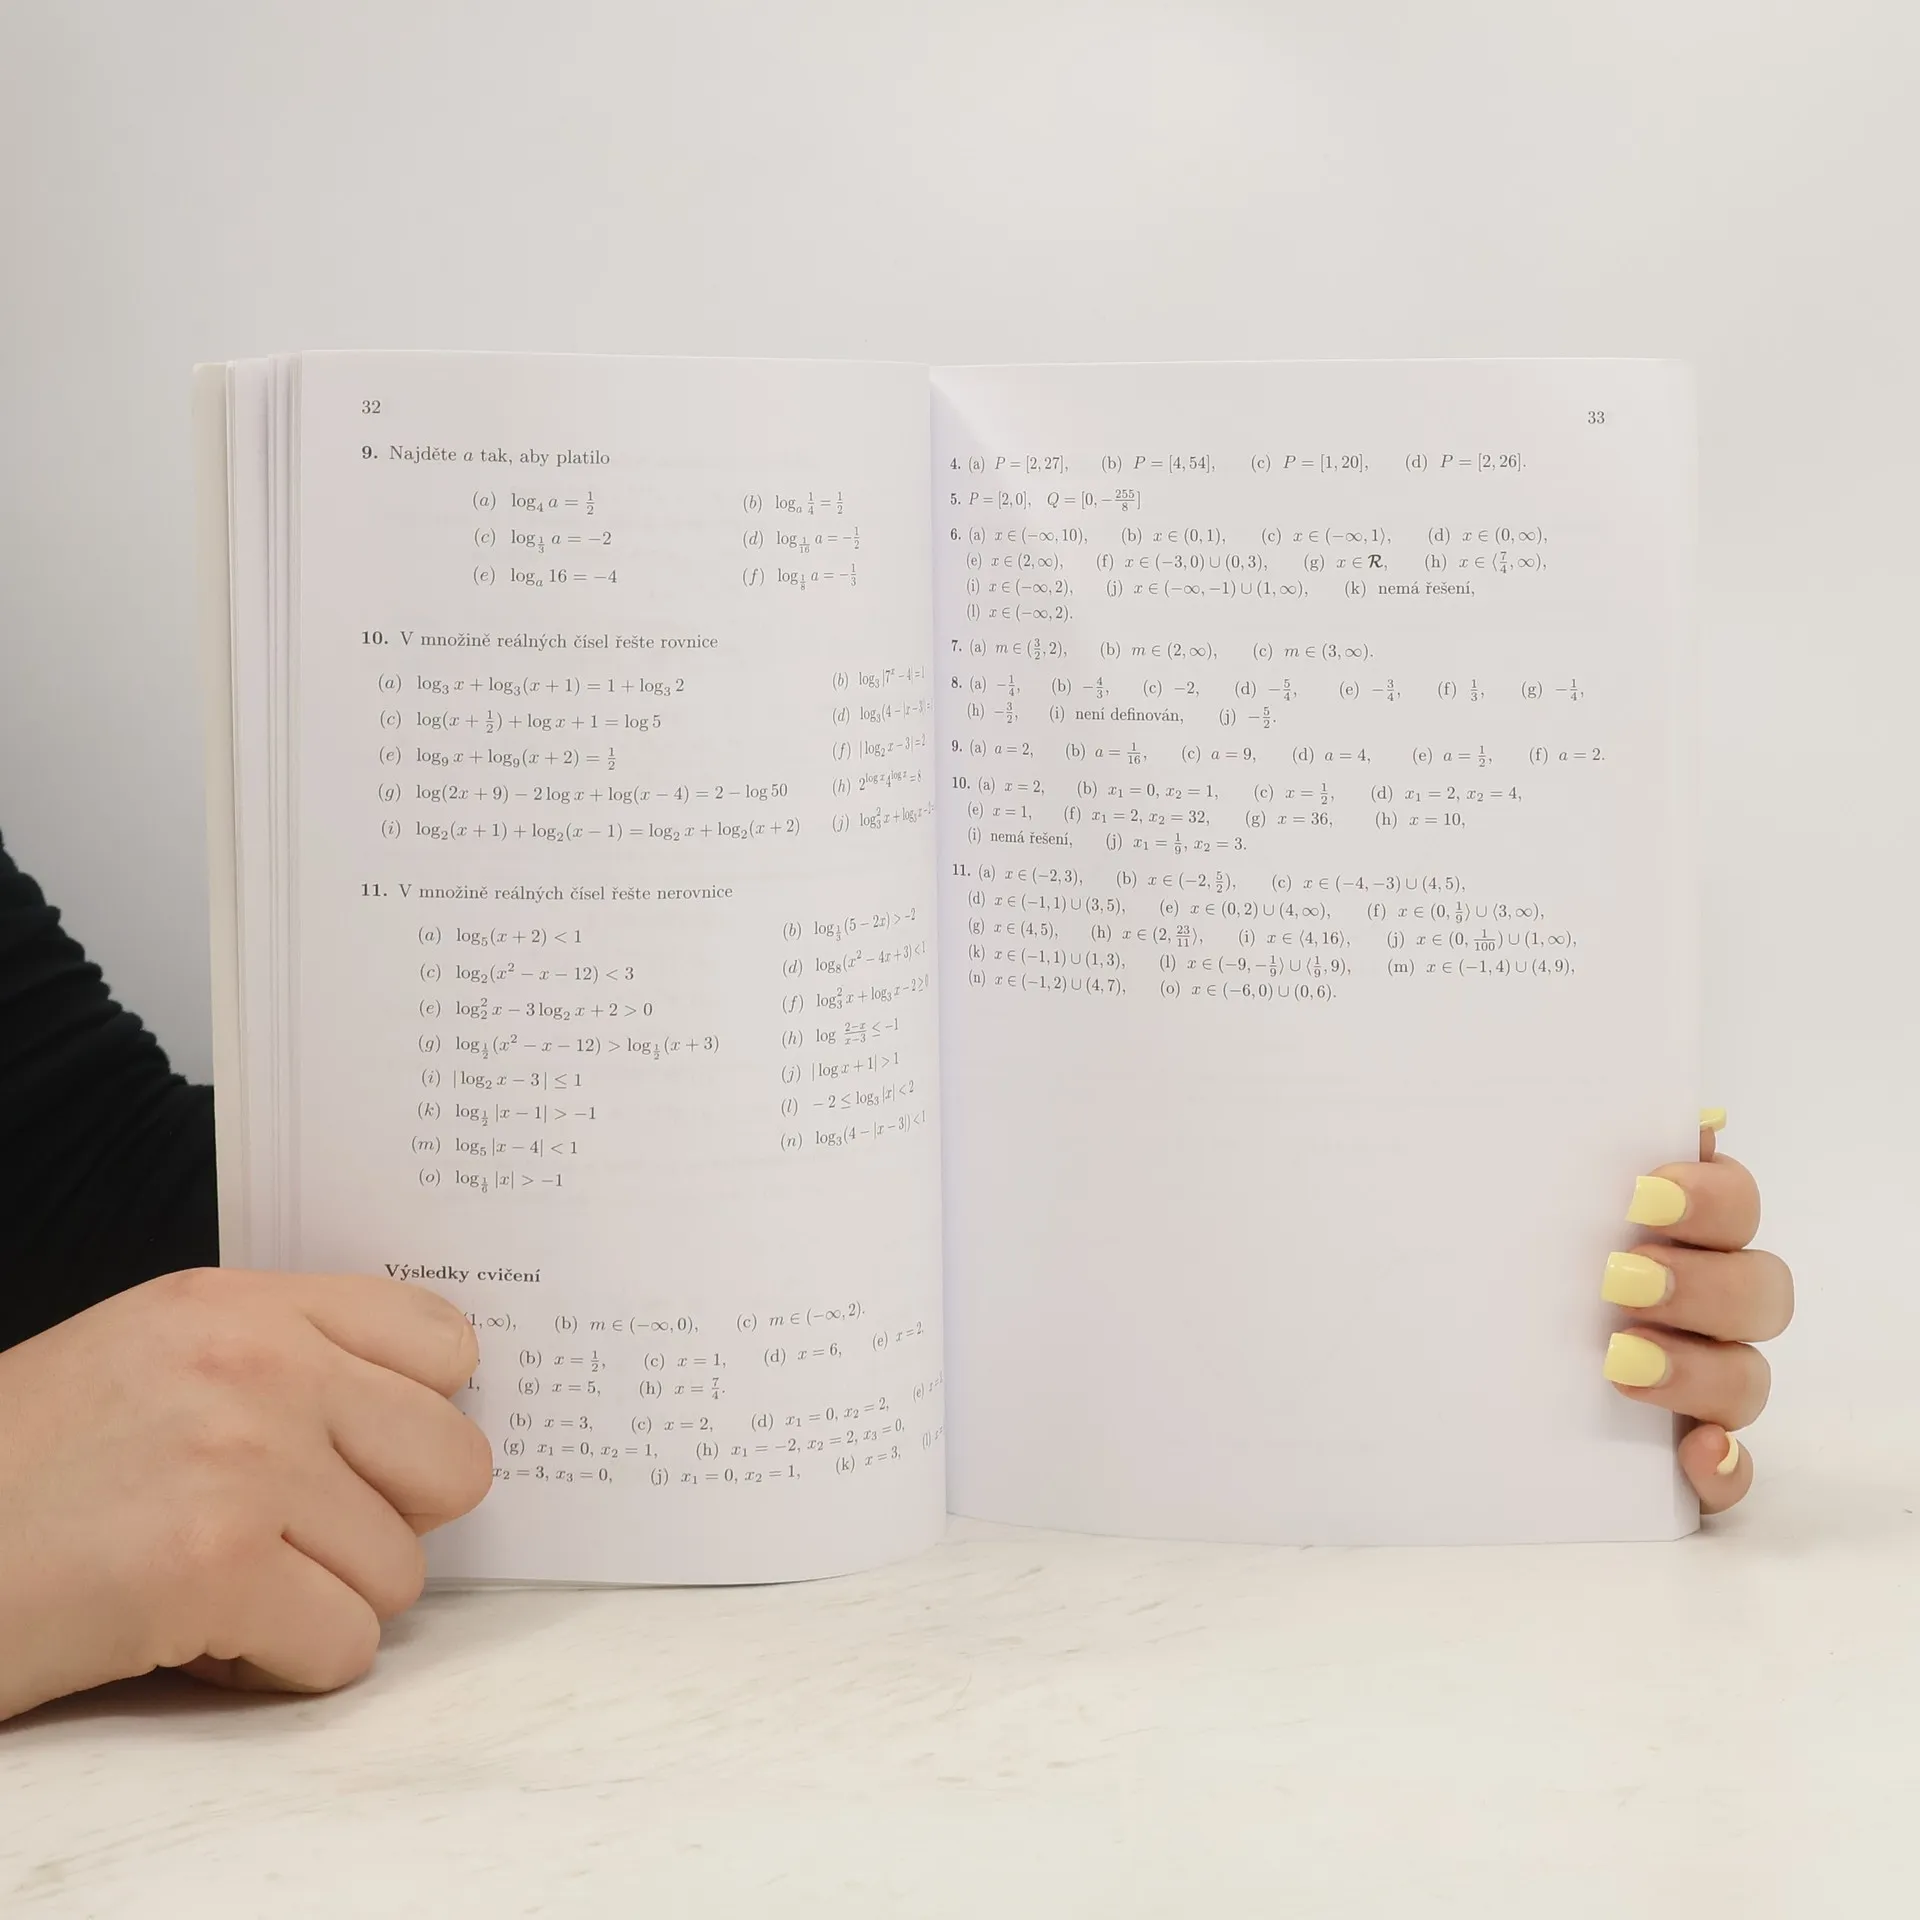 32
9. Najděte a tak, aby platilo
(a) log₄ a = 1/2 (b) logₐ 1/4 = 1/2
(c) log_{1/3} a = −2 (d) log_{1/16} a = −1/2
(e) logₐ 16 = −4 (f) log_{1/8} a = −1/3
10. V množině reálných čísel řešte rovnice
(a) log₃ x + log₃(x + 1) = 1 + log₃ 2 (b) log₃|7ˣ − 4| = 1
(c) log(x + 1/2) + log x + 1 = log 5 (d) log₃(4 − |x − 3|) =
(e) log₉ x + log₉(x + 2) = 1/2 (f) |log₂ x − 3| = 2
(g) log(2x + 9) − 2 log x + log(x − 4) = 2 − log 50 (h) 2^{log x} 4^{log x} = 8
(i) log₂(x + 1) + log₂(x − 1) = log₂ x + log₂(x + 2) (j) log₃² x + log₃ x − 2 =
11. V množině reálných čísel řešte nerovnice
(a) log₅(x + 2) < 1 (b) log_{1/3}(5 − 2x) > −2
(c) log₂(x² − x − 12) < 3 (d) log₈(x² − 4x + 3) < 1
(e) log₂² x − 3 log₂ x + 2 > 0 (f) log₃² x + log₃ x − 2 ≥ 0
(g) log_{1/2}(x² − x − 12) > log_{1/2}(x + 3) (h) log (2−x)/(x−3) ≤ −1
(i) |log₂ x − 3| ≤ 1 (j) |log x + 1| > 1
(k) log_{1/2} |x − 1| > −1 (l) −2 ≤ log₃ |x| < 2
(m) log₅ |x − 4| < 1 (n) log₃(4 − |x − 3|) < 1
(o) log_{1/6} |x| > −1
Výsledky cvičení
1, ∞), (b) m ∈ (−∞, 0), (c) m ∈ (−∞, 2).
(b) x = 1/2, (c) x = 1, (d) x = 6, (e) x = 2,
1, (g) x = 5, (h) x = 7/4.
(b) x = 3, (c) x = 2, (d) x₁ = 0, x₂ = 2, (e)
(g) x₁ = 0, x₂ = 1, (h) x₁ = −2, x₂ = 2, x₃ = 0,
x₂ = 3, x₃ = 0, (j) x₁ = 0, x₂ = 1, (k) x = 3, (l)
33
4. (a) P = [2, 27], (b) P = [4, 54], (c) P = [1, 20], (d) P = [2, 26].
5. P = [2, 0], Q = [0, −255/8]
6. (a) x ∈ (−∞, 10), (b) x ∈ (0, 1), (c) x ∈ (−∞, 1⟩, (d) x ∈ (0, ∞),
(e) x ∈ (2, ∞), (f) x ∈ (−3, 0) ∪ (0, 3), (g) x ∈ R, (h) x ∈ ⟨7/4, ∞),
(i) x ∈ (−∞, 2), (j) x ∈ (−∞, −1) ∪ (1, ∞), (k) nemá řešení,
(l) x ∈ (−∞, 2).
7. (a) m ∈ (3/2, 2), (b) m ∈ (2, ∞), (c) m ∈ (3, ∞).
8. (a) −1/4, (b) −4/3, (c) −2, (d) −5/4, (e) −3/4, (f) 1/3, (g) −1/4,
(h) −3/2, (i) není definován, (j) −5/2.
9. (a) a = 2, (b) a = 1/16, (c) a = 9, (d) a = 4, (e) a = 1/2, (f) a = 2.
10. (a) x = 2, (b) x₁ = 0, x₂ = 1, (c) x = 1/2, (d) x₁ = 2, x₂ = 4,
(e) x = 1, (f) x₁ = 2, x₂ = 32, (g) x = 36, (h) x = 10,
(i) nemá řešení, (j) x₁ = 1/9, x₂ = 3.
11. (a) x ∈ (−2, 3), (b) x ∈ (−2, 5/2), (c) x ∈ (−4, −3) ∪ (4, 5),
(d) x ∈ (−1, 1) ∪ (3, 5), (e) x ∈ (0, 2) ∪ (4, ∞), (f) x ∈ (0, 1/9⟩ ∪ ⟨3, ∞),
(g) x ∈ (4, 5), (h) x ∈ (2, 23/11⟩, (i) x ∈ ⟨4, 16⟩, (j) x ∈ (0, 1/100) ∪ (1, ∞),
(k) x ∈ (−1, 1) ∪ (1, 3), (l) x ∈ (−9, −1/9⟩ ∪ ⟨1/9, 9), (m) x ∈ (−1, 4) ∪ (4, 9),
(n) x ∈ (−1, 2) ∪ (4, 7), (o) x ∈ (−6, 0) ∪ (0, 6).